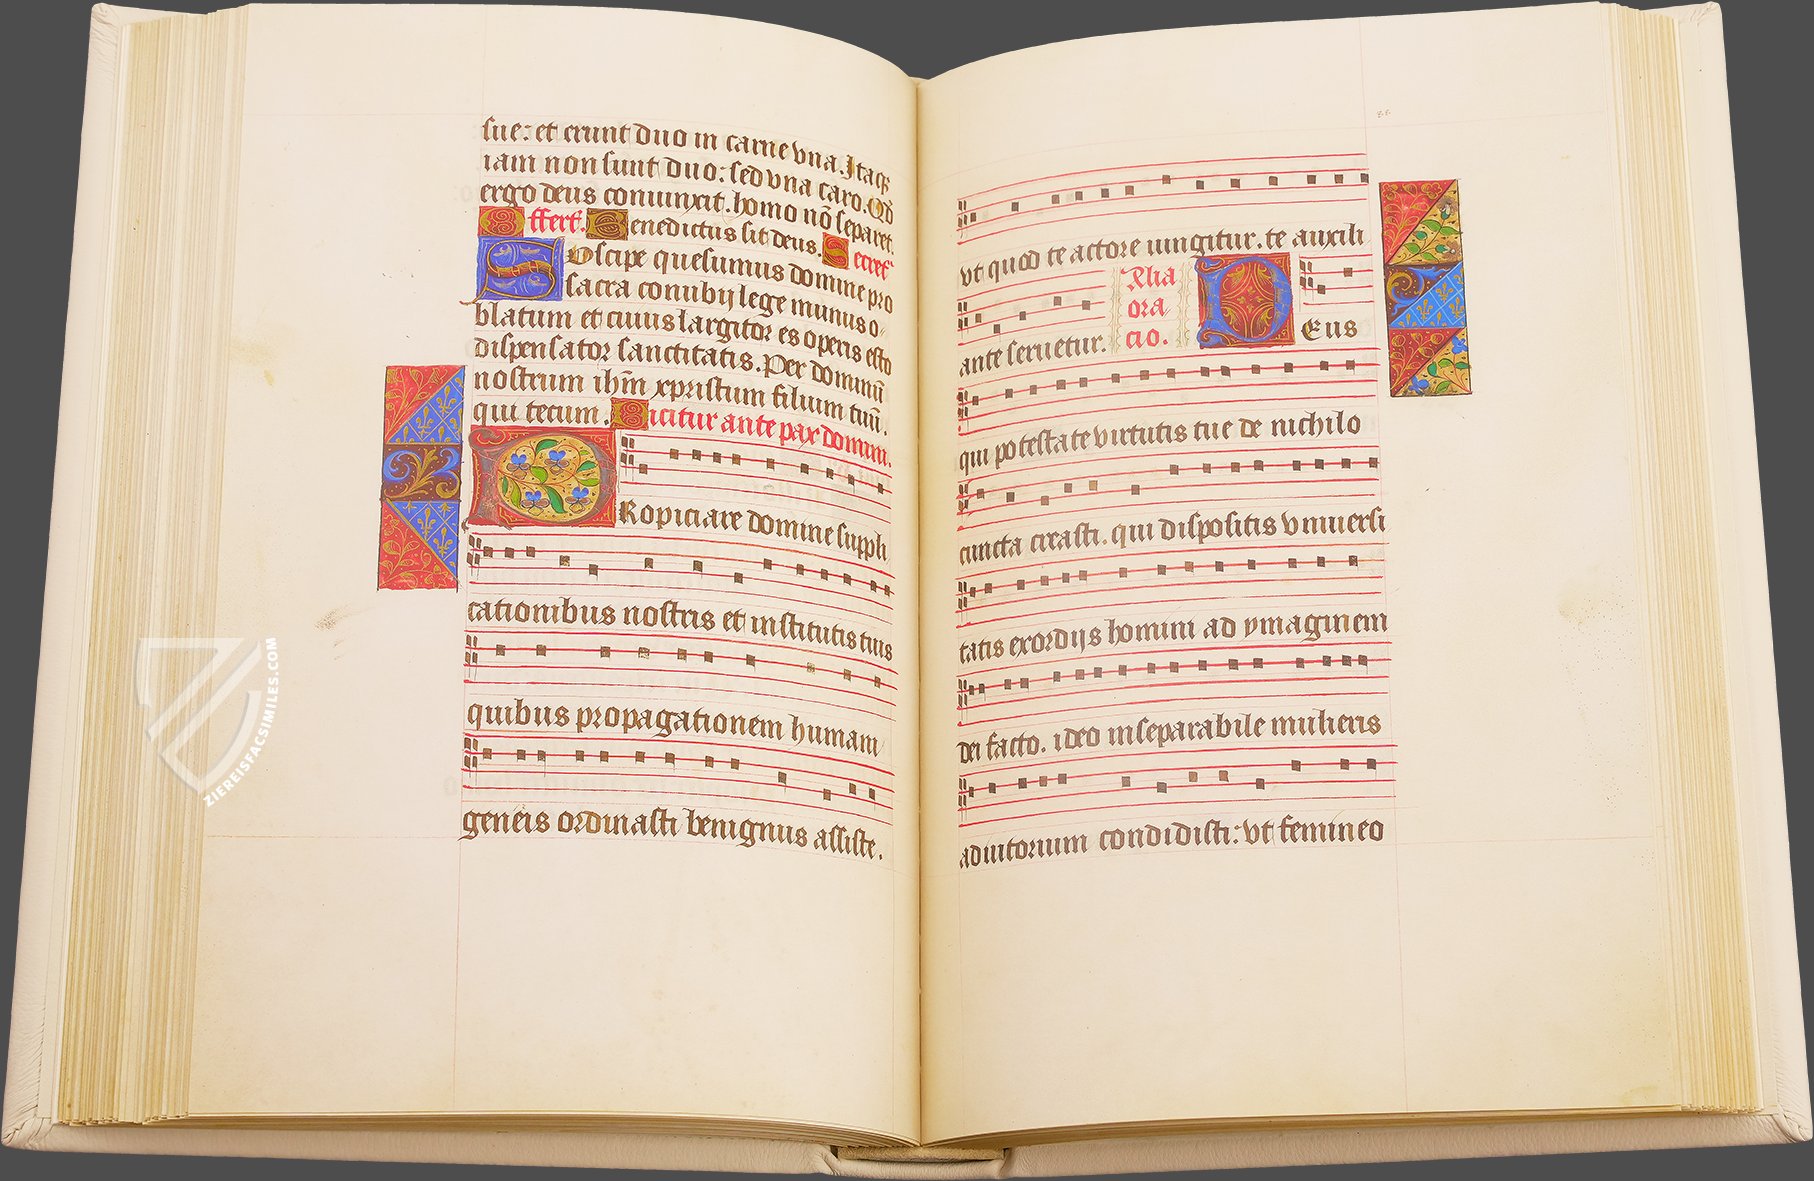 sue: et erunt duo in carne vna. Itaqꝫ
iam non sunt duo: sed vna caro. Qđ
ergo deus coniunxit. homo nō separet.
Offert. Benedictus sit deus. Secret
Suscipe quesumus domine pro
sacra conubij lege munus o-
blatum et cuius largitor es operis esto
dispensator sanctitatis. Per dominū
nostrum ihm̄ xpristum filium tuū.
qui tecum. Dicitur ante pax domini.
PRopiciare domine suppli
cationibus nostris et institutis tuis
quibus propagationem humani
generis ordinasti benignus assiste.
88
vt quod te actore iungitur. te auxili
ante seruetur. Alia ora cio. DEus
qui potestate virtutis tue de nichilo
cuncta creasti. qui dispositis vniuersi
tatis exordijs homini ad ymaginem
dei facto. ideo inseparabile mulieris
adiutorium condidisti: vt femineo
ZIEREISFACSIMILES.COM